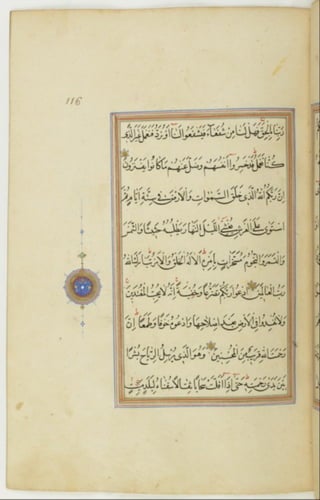 116
ربنا بالحق فهل لنا من شفعاء فيشفعوا لنا او نرد فنعمل غير الذي
كنا نعمل قد خسروا انفسهم وضل عنهم ما كانوا يفترون
ان ربكم الله الذي خلق السموات والارض في ستة ايام ثم
استوى على العرش يغشي الليل النهار يطلبه حثيثا والشمس
والقمر والنجوم مسخرات بامره الا له الخلق والامر تبارك الله
رب العالمين ادعوا ربكم تضرعا وخفية انه لا يحب المعتدين
ولا تفسدوا في الارض بعد اصلاحها وادعوه خوفا وطمعا ان
رحمت الله قريب من المحسنين وهو الذي يرسل الرياح بشرا
بين يدي رحمته حتى اذا اقلت سحابا ثقالا سقناه لبلد ميت